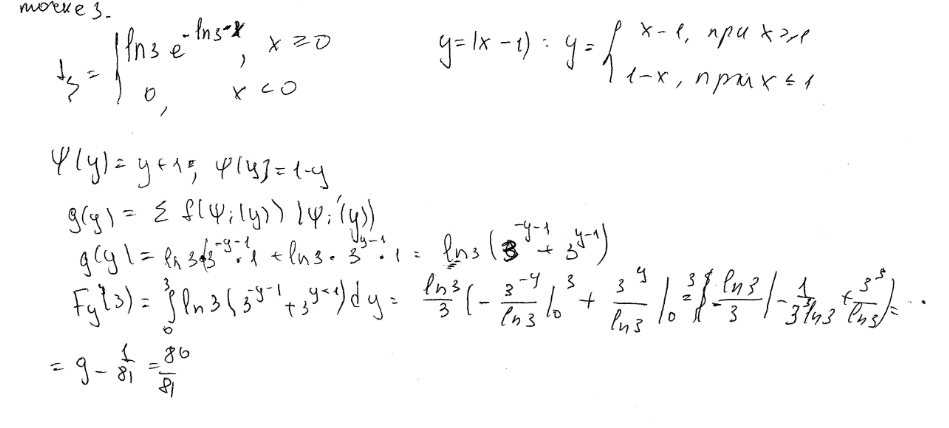 точке 3.
f_ξ = { ln3 e^{-ln3·x}, x ≥ 0
0, x < 0
y = |x - 1| : y = { x - 1, при x ≥ 1
1 - x, при x ≤ 1
Ψ(y) = y + 1; Ψ(y) = 1 - y
g(y) = Σ f(Ψ_i(y)) |Ψ_i'(y)|
g(y) = ln3·3^{-y-1}·1 + ln3·3^{y-1}·1 = ln3 (3^{-y-1} + 3^{y-1})
F_y(3) = ∫_0^3 ln3 (3^{-y-1} + 3^{y-1}) dy = ln3/3 (- 3^{-y}/ln3 |_0^3 + 3^y/ln3 |_0^3 = ln3/3 (- 1/3^3 ln3 + 3^3/ln3) = ...
= 9 - 1/81 = 80/81